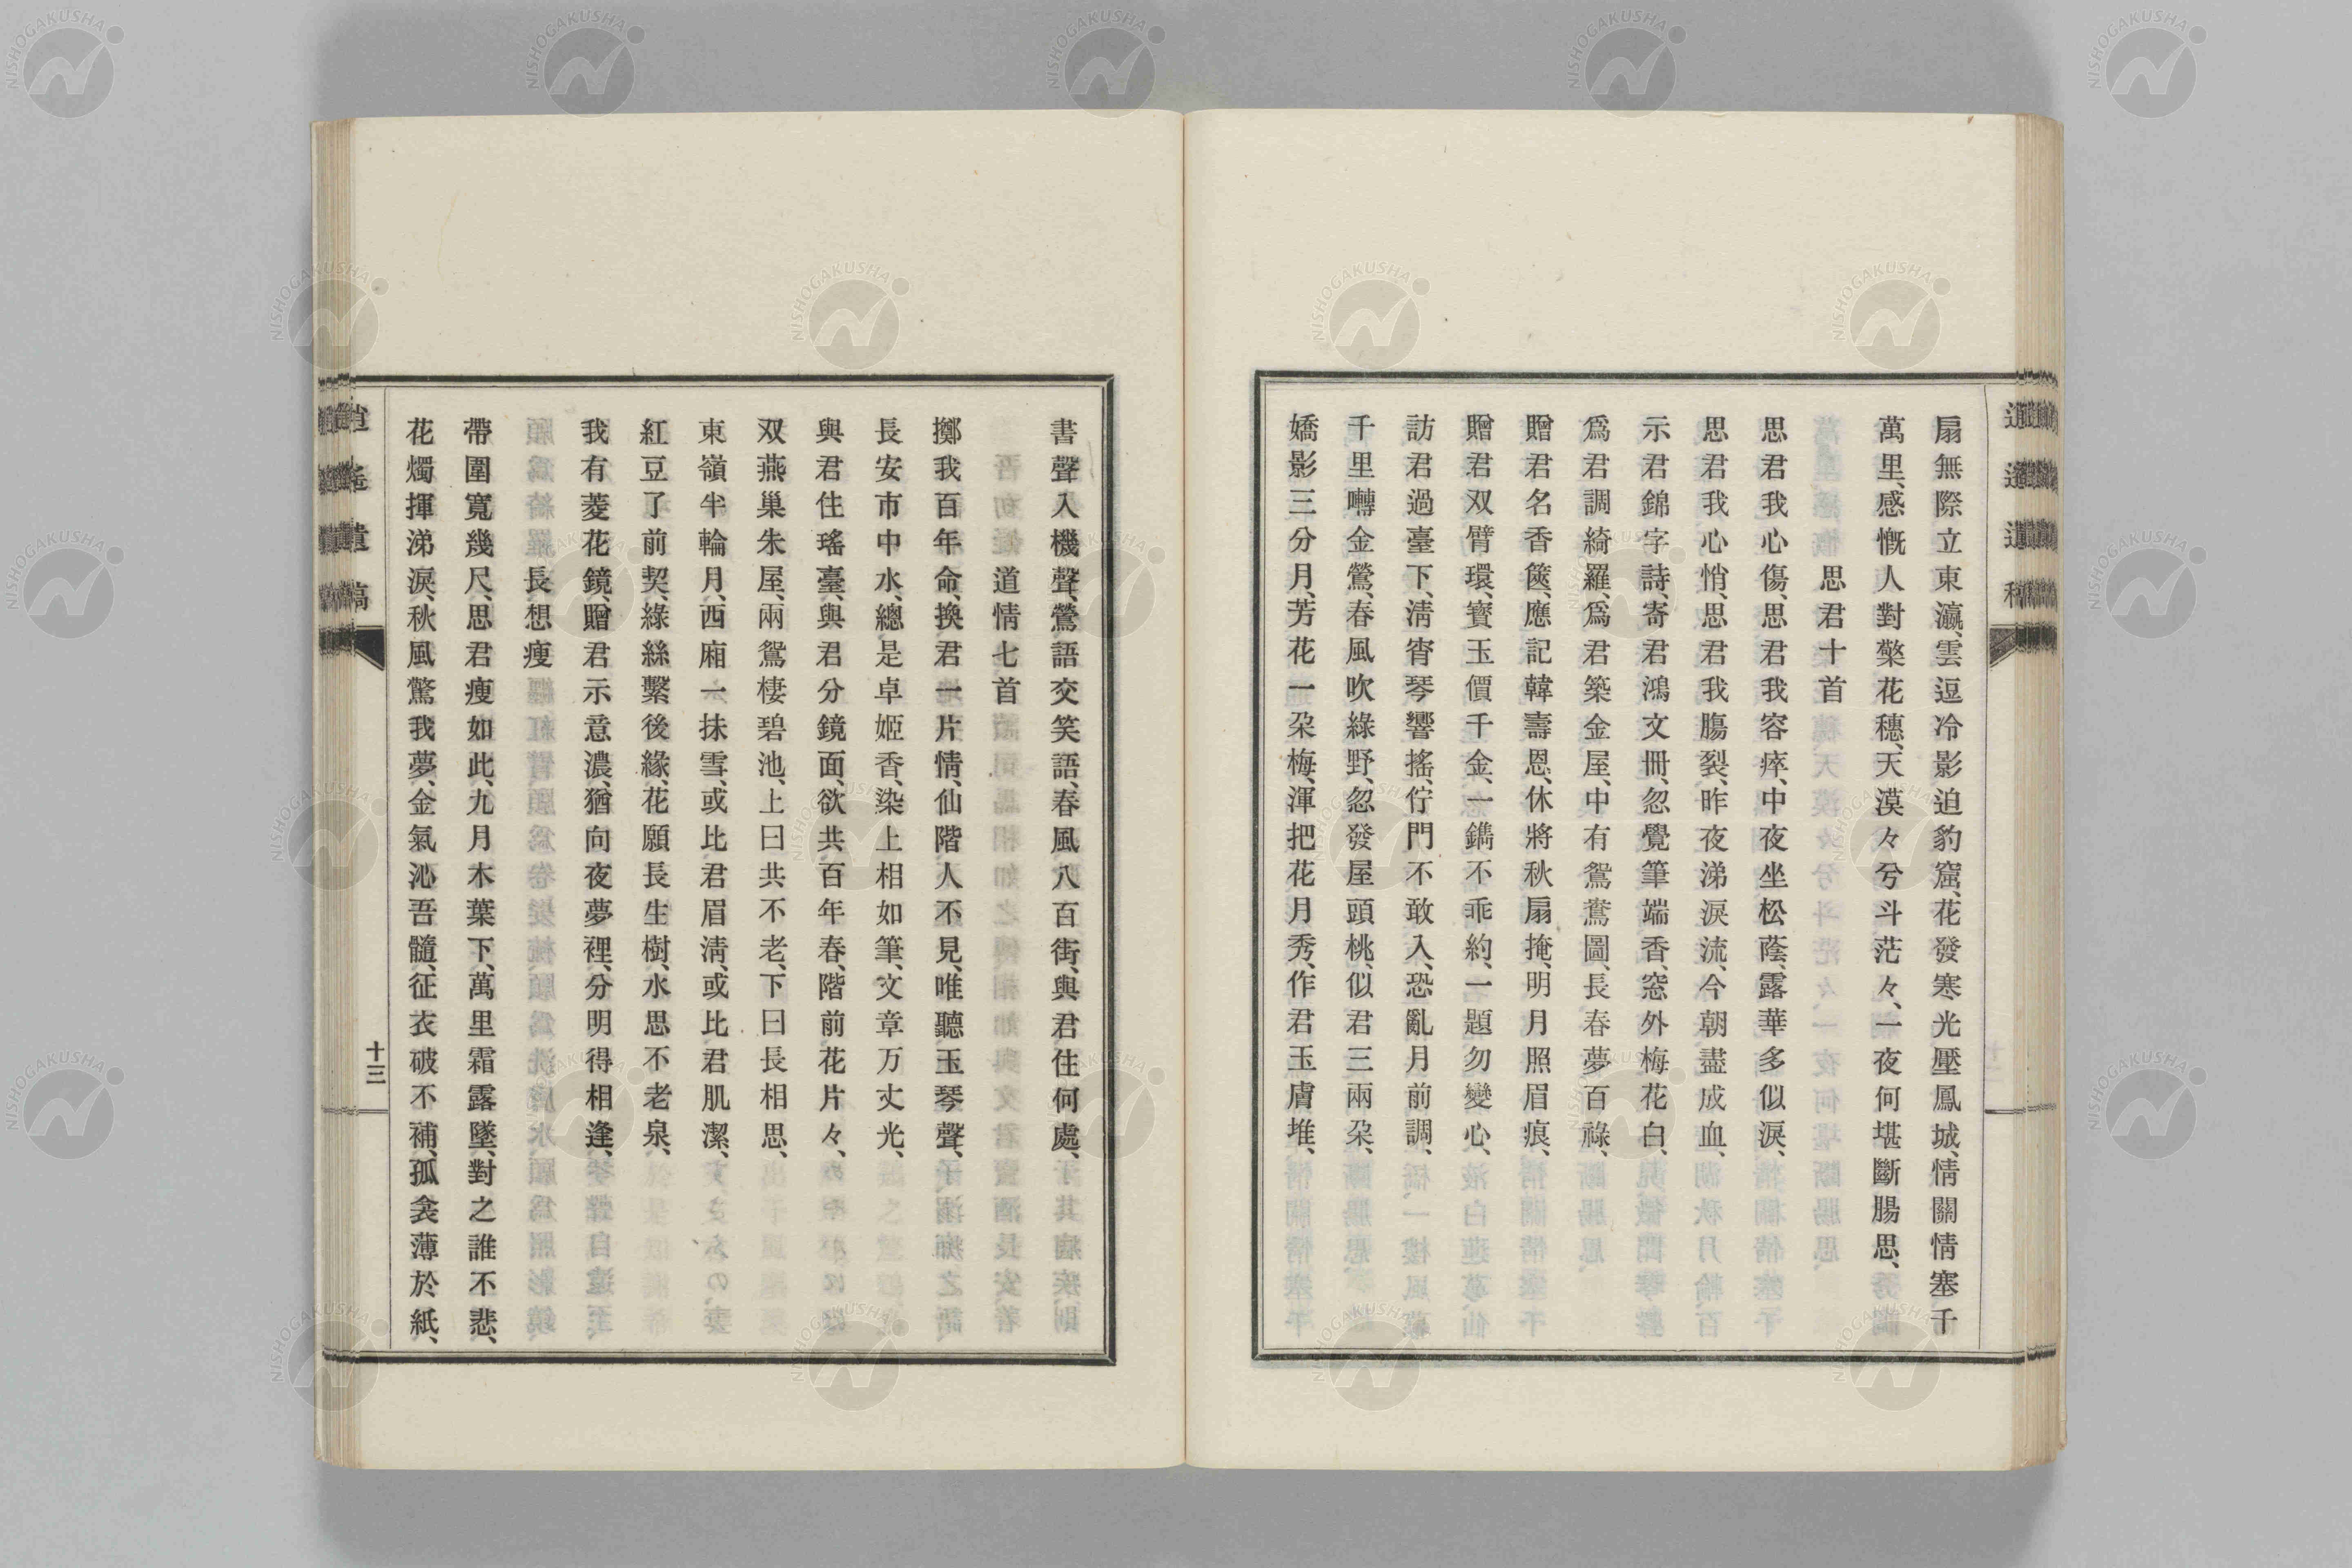 扇無際立東瀛、雲逗冷影迫豹窟、花發寒光壓鳳城、情關情塞千
萬里、感慨人對檠花穗、天漠々兮斗茫々、一夜何堪斷腸思、
思君十首
思君我心傷、思君我容瘁、中夜坐松蔭、露華多似淚、
思君我心悄、思君我腸裂、昨夜涕淚流、今朝盡成血、
示君錦字詩、寄君鴻文冊、忽覺筆端香、窓外梅花白、
爲君調綺羅、爲君築金屋、中有鴛鴦圖、長春夢百祿、
贈君名香篋、應記韓壽恩、休將秋扇掩、明月照眉痕、
贈君双臂環、寳玉價千金、一鐫不乖約、一題勿變心、
訪君過臺下、淸宵琴響搖、佇門不敢入、恐亂月前調、
千里囀金鶯、春風吹綠野、忽發屋頭桃、似君三兩朶、
嬌影三分月、芳花一朶梅、渾把花月秀、作君玉膚堆、
書聲入機聲、鶯語交笑語、春風八百街、與君住何處、
道情七首
擲我百年命、換君一片情、仙階人不見、唯聽玉琴聲、
長安市中水、總是卓姬香、染上相如筆、文章万丈光、
與君住瑤臺、與君分鏡面、欲共百年春、階前花片々、
双燕巢朱屋、兩鴛棲碧池、上曰共不老、下曰長相思、
東嶺半輪月、西廂一抹雪、或比君眉淸、或比君肌潔、
紅豆了前契、綠絲繫後緣、花願長生樹、水思不老泉、
我有菱花鏡、贈君示意濃、猶向夜夢裡、分明得相逢、
長想瘦
帶圍寬幾尺、思君瘦如此、九月木葉下、萬里霜露墜、對之誰不悲、
花燭揮涕淚、秋風驚我夢、金氣沁吾髓、征衣破不補、孤衾薄於紙、
十三